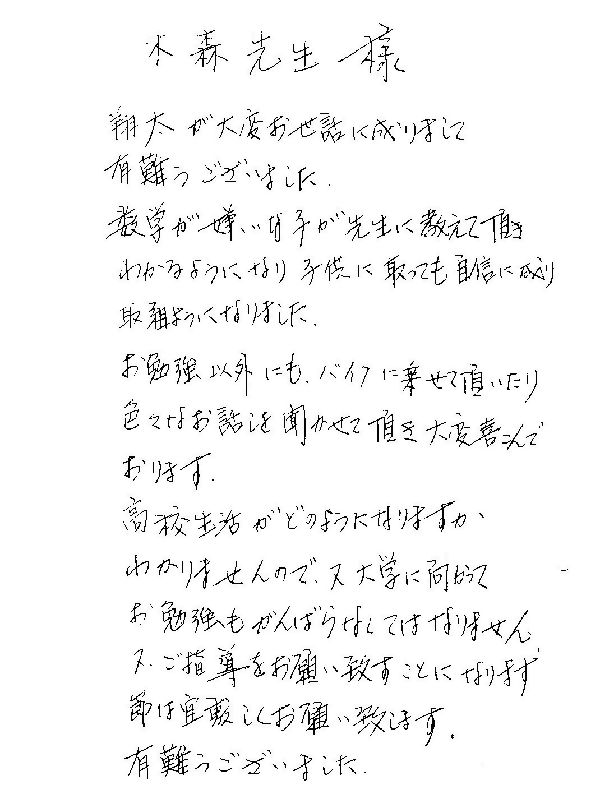 木森先生様
翔太が大変お世話に成りまして
有難うございました.
数学が嫌いな子が先生に教えて頂き
わかるようになり子供に取っても自信に成り
取組ようになりました.
お勉強以外にも、バイクに乗せて頂いたり
色々なお話しを聞かせて頂き大変喜こんで
おります.
高校生活がどのようになりますか、
わかりませんので、又大学に向かって
お勉強もがんばらなくてはなりません
又、ご指導をお願い致すことになります
節は宜敷しくお願い致します.
有難うございました.